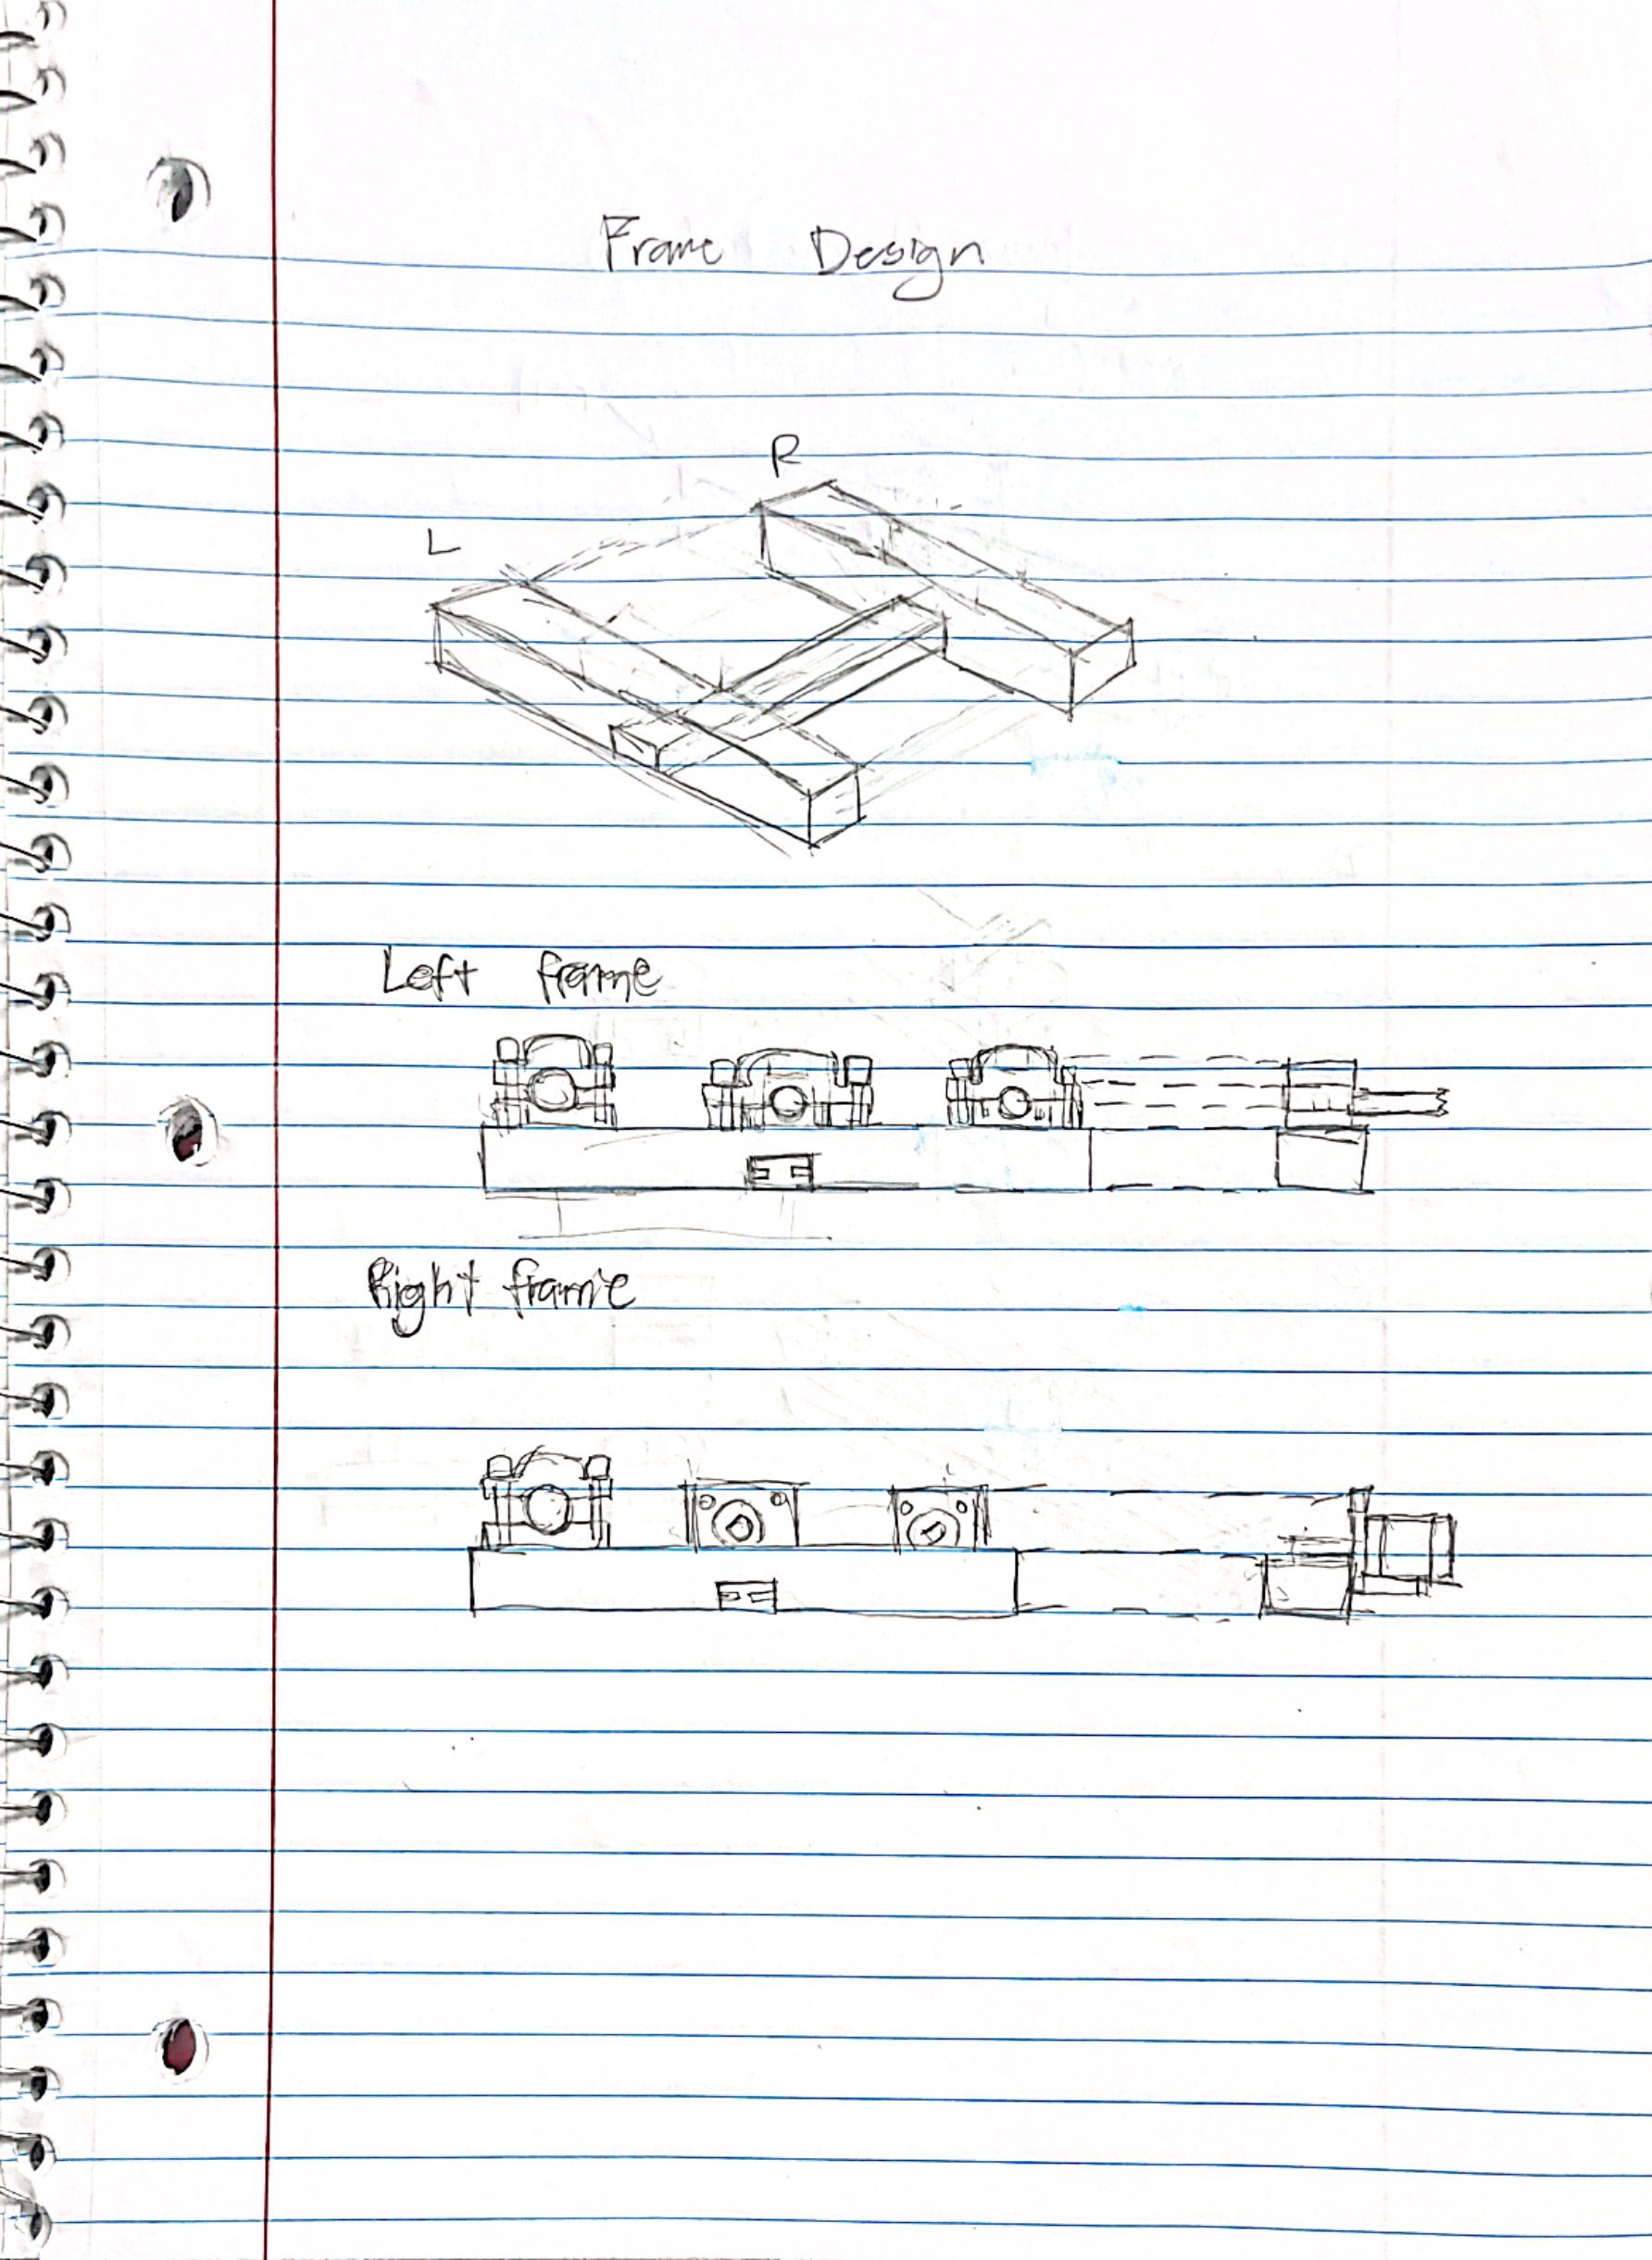 Frame Design
R
L
Left frame
Right frame